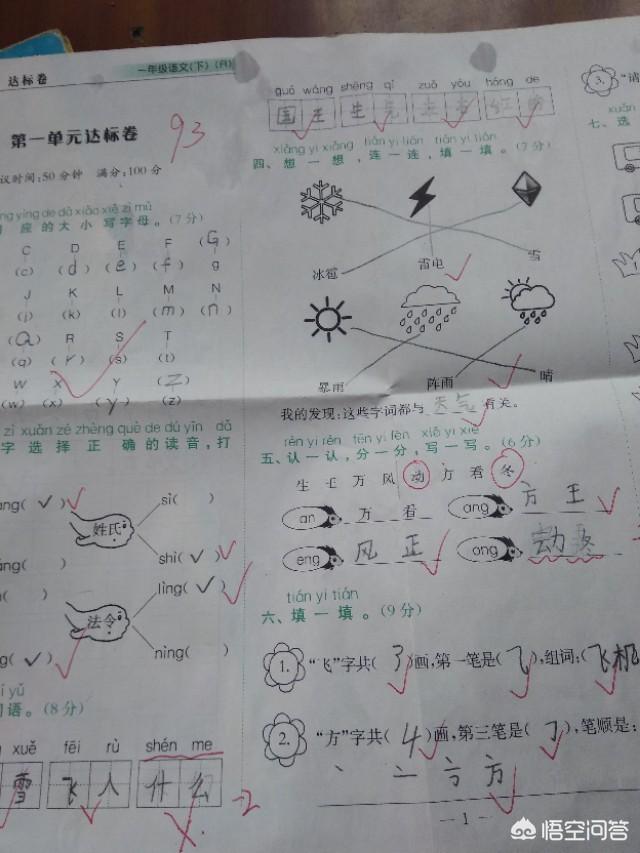 达标卷
一年级语文(下)(R)
第一单元达标卷
93
议时间:50分钟 满分:100分
应的大小写字母。(7分)
C D E F (G)
(c) (d) (e) (f) g
J K L M N
(j) (k) (l) (m) (n)
(Q) R S T
(q) (r) (s) (t)
W X Y (Z)
(w) (x) (y) (z)
zì xuǎn zé zhèng què de dú yīn dǎ
字选择正确的读音,打
姓氏
sì( )
shì(✓)
法令
lìng(✓)
nìng( )
词语。(8分)
xuě fēi rù shén me
雪 飞 人 什 么
-2
guó wáng shēng qì zuǒ yòu hóng de
国 王 生
xiǎng yi xiǎng lián yi lián tián yi tián
四、想一想,连一连,填一填。(7分)
冰雹 雷电 雪
暴雨 阵雨 晴
我的发现:这些字词都与天气有关。
rèn yi rèn fēn yi fēn xiě yi xiě
五、认一认,分一分,写一写。(6分)
生 正 万 风 动 方 看 冬
an 万 看 ang 方 王
eng 风 正 ong 动 冬
tián yi tián
六、填一填。(9分)
1. “飞”字共(3)画,第一笔是(⺄),组词:(飞机
2. “方”字共(4)画,第三笔是(𠃌),笔顺是:
丶 亠 亠 方
— 1 —
3. “请
xuǎn
七、选
悟空问答